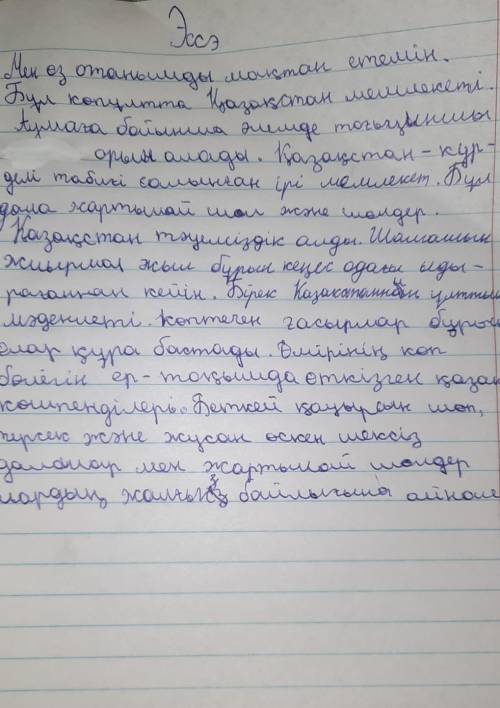 Эссэ
Мен өз отанымды мақтан етемін.
Бұл көпұлтта Қазақстан мемлекеті.
Аумаға байынша әлемде тоғызыншы
орын алады. Қазақстан - күр-
делі табиғи салынған ірі мемлекет. Бұл
дала жартылай шөл және шөлдер.
Қазақстан тәуелсіздік алды. Шамамен
жиырма жыл бұрын кеңес одағы ыды-
рағаннан кейін. Бірек Қазақстанның ұлттық
мәдениеті. көптеген ғасырлар бұрын
олар құра бастады. Өмірінің көп
бөлегін ер-тоқымда өткізген қазақ
көшпенділері. Беткей қауырсын шөп,
терсек және жусан өскен шексіз
далалар мен жартылай шөлдер
лардың жалғыз байлығына айнал